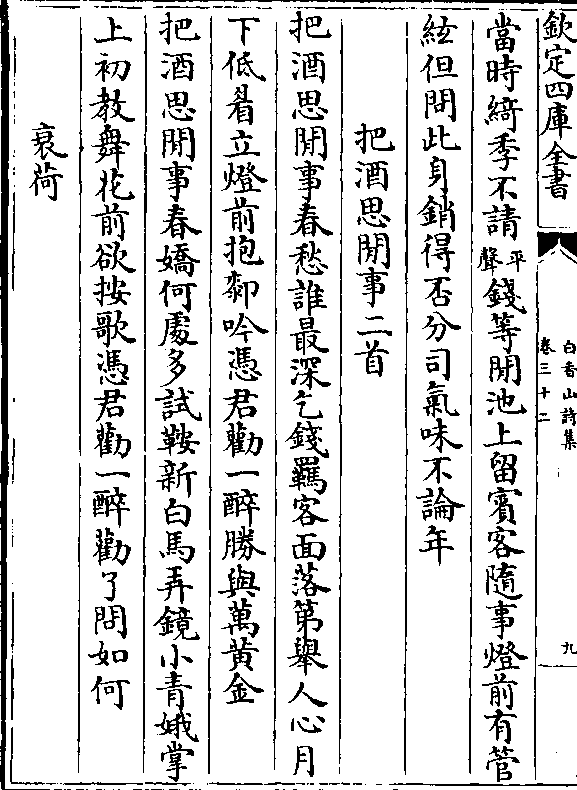 欽定四庫全書
白香山詩集
卷三十二
九
當時綺季不請平聲錢等閒池上留賓客隨事燈前有管
絃但問此身銷得否分司氣味不論年
把酒思閒事二首
把酒思閒事春愁誰最深乞錢羈客面落第舉人心月
下低眉立燈前抱膝吟憑君勸一醉勝與萬黃金
把酒思閒事春嬌何處多試鞍新白馬弄鏡小青娥掌
上初教舞花前欲按歌憑君勸一醉勸了問如何
衰荷